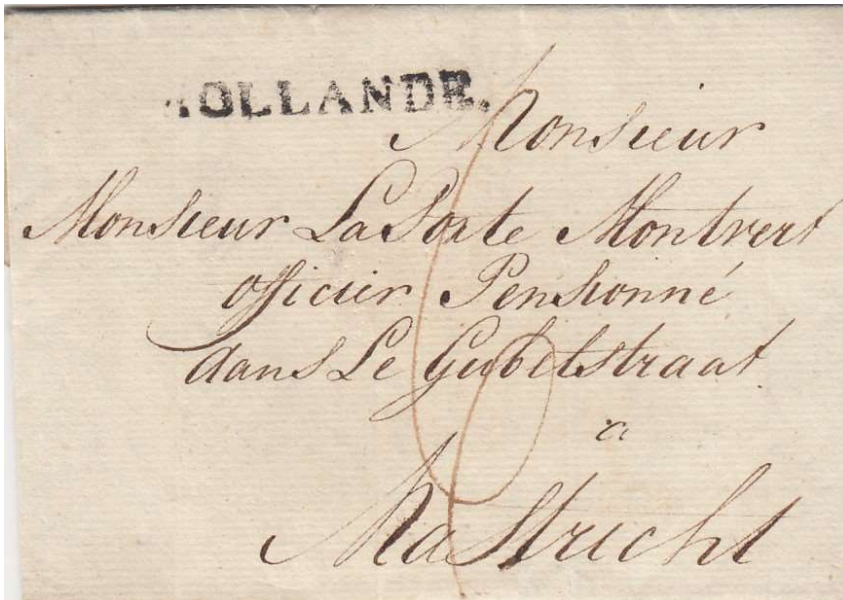 HOLLANDE.
Monsieur
Monsieur La Porte Montvert
officier Pensionné
dans Le Gubelstraat
a
Mastricht
6